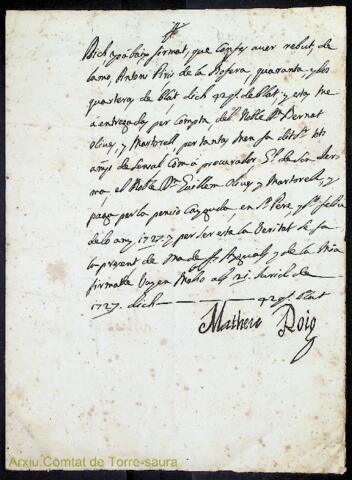 Dich yo abaix firmat, que Confes aver rebut, de
lamo, Antoni Piris de la Rofera quaranta, y dos
quarteras, de blat dich 42 qs. de blat, y esta me
a entregado, per Compta, del Noble Dn. Bernat
Olivez, y Martorell, per tants, men fa dits
añys de Sensal Com á procurador, de son Ger
má, el Noble Dn. Guillem Olivez y Martorell, y
paga per la pencio Cayguda, en St. Pere, y St. feliu
de lo any, 1727, y per ser esta la Veritat fe fa
la present de ma de Pasqual, y de la Mia
firmada Vuy en Mahó als 21 Juriol de
1727 dich 42 qs. blat
Matheu Roig
Arxiu Comtat de Torre-saura